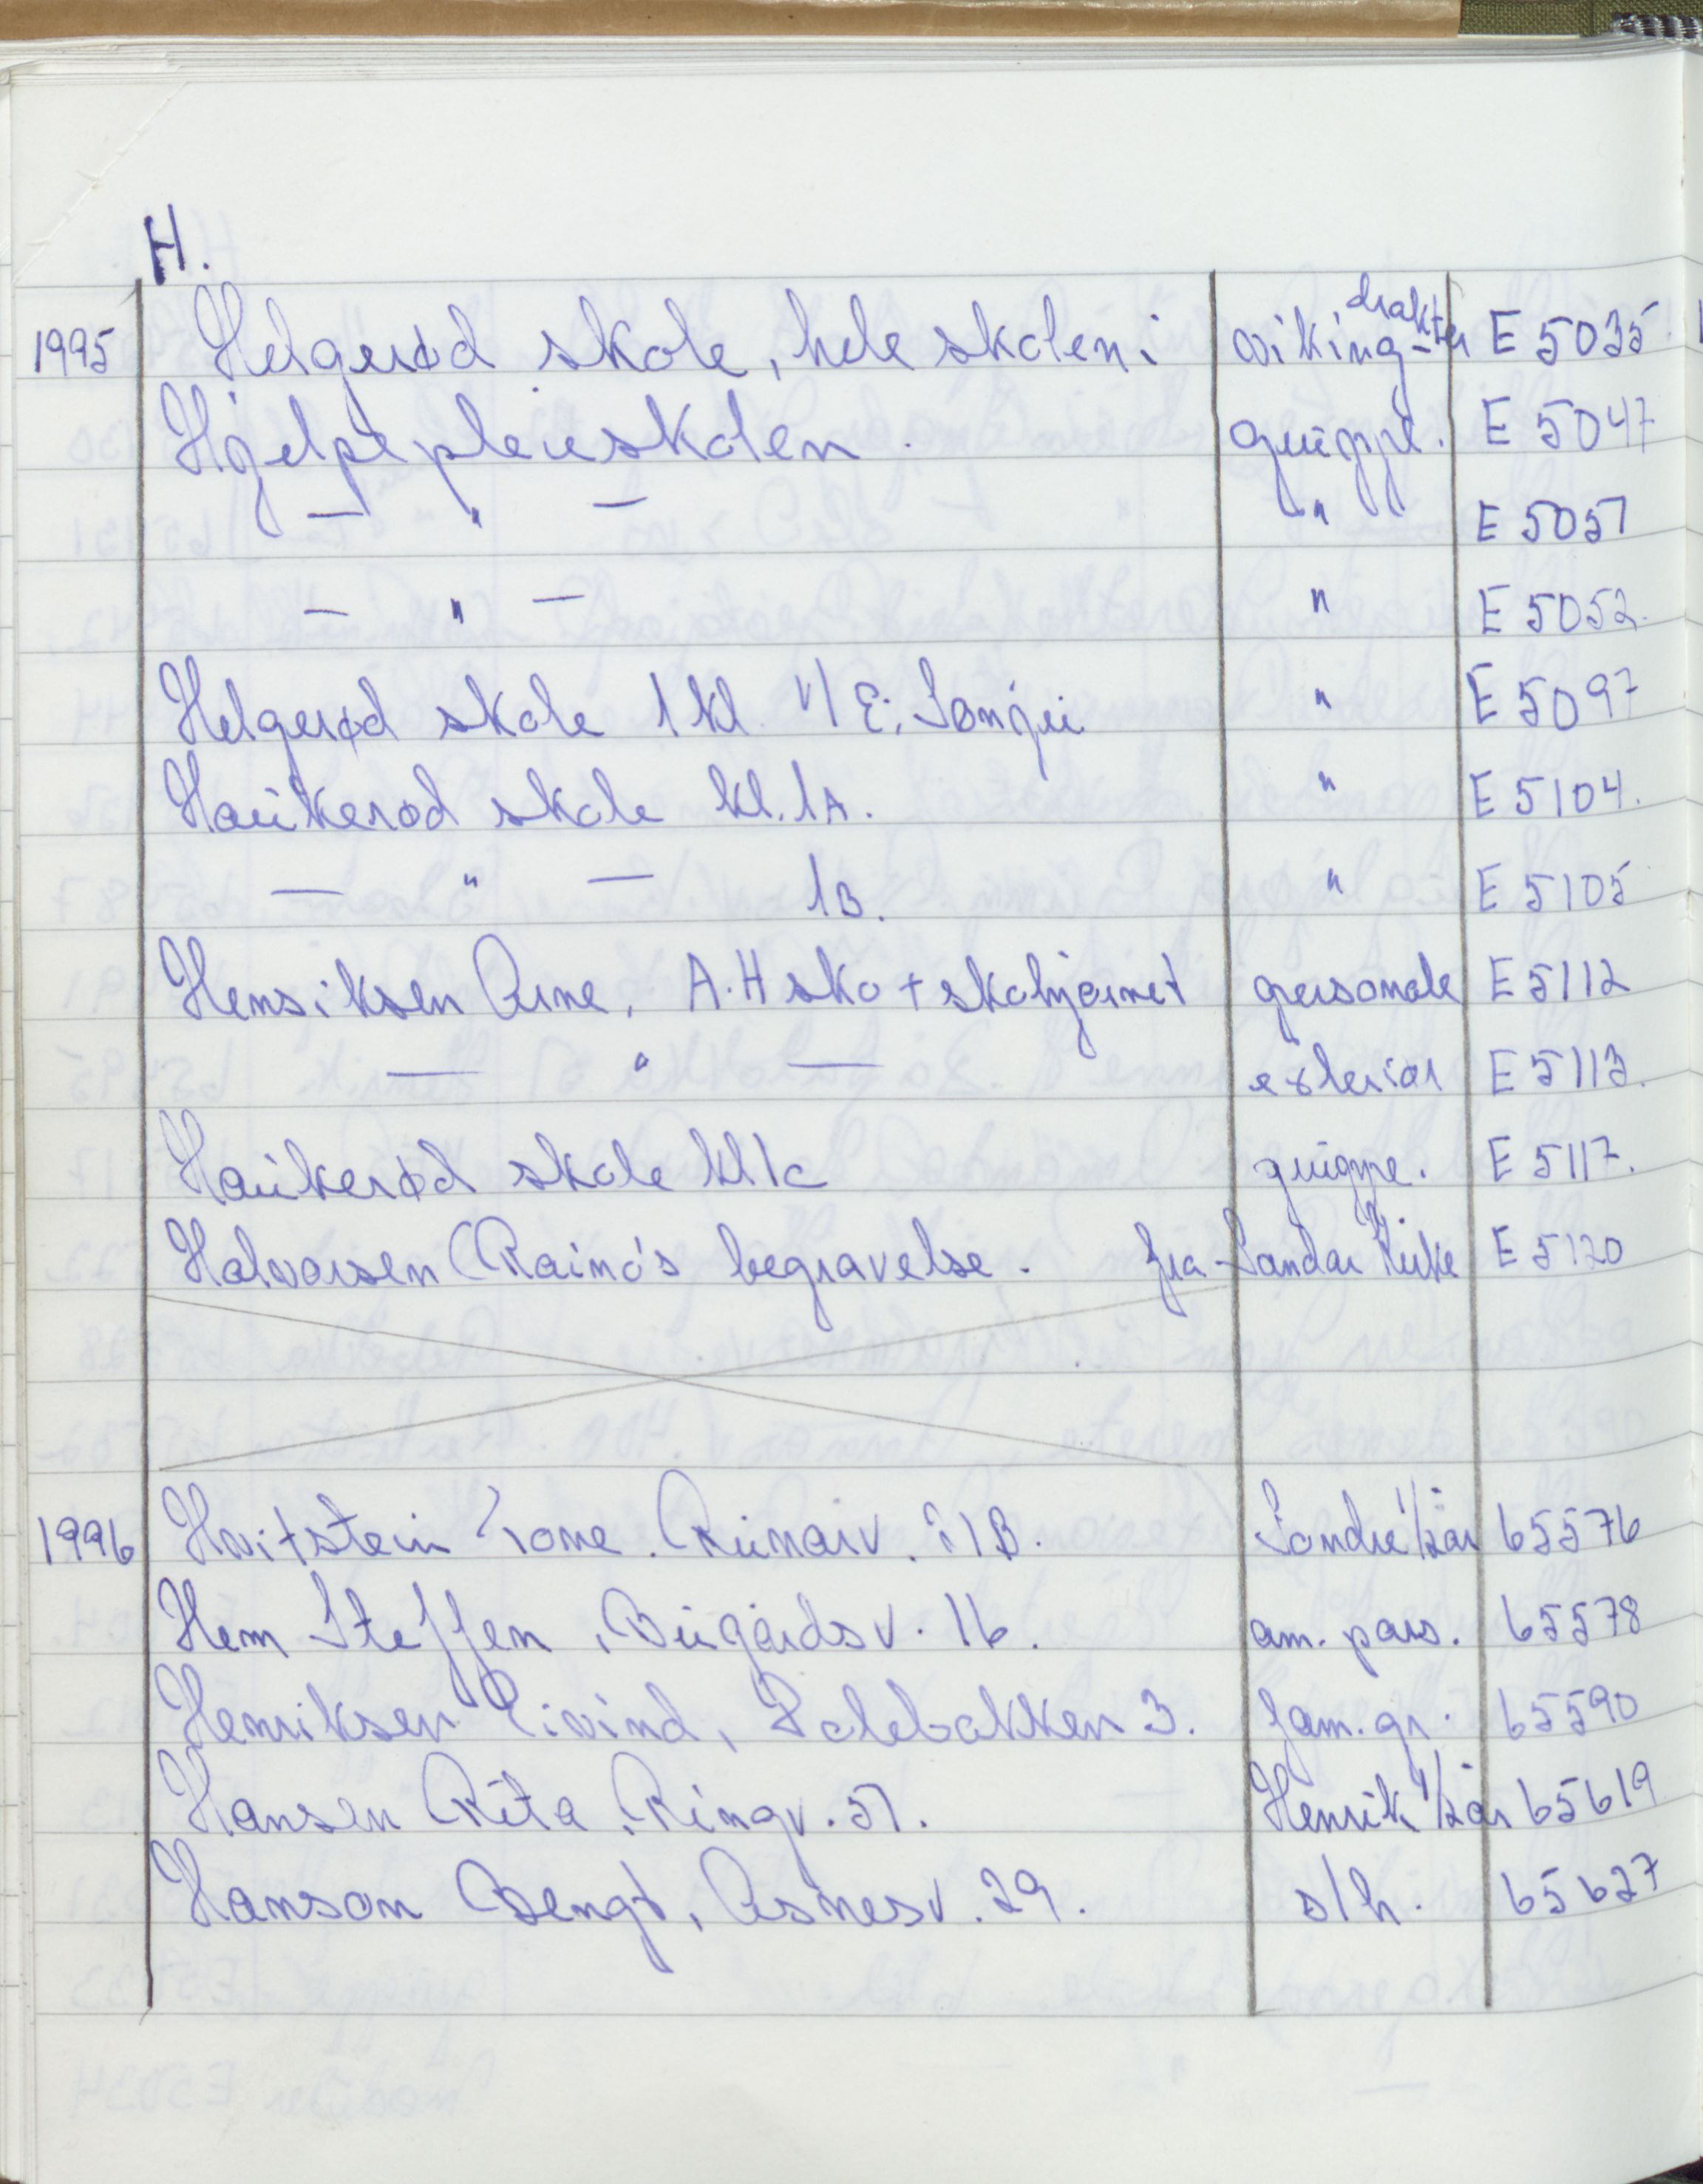 H.
1995 Helgerød skole, hele skolen i viking-drakter E 5035
Hjelpepleieskolen. gruppe. E 5047
— " — " E 5051
— " — " E 5052.
Helgerød skole 1 kl. v/ E. " E 5097
Haukerød skole kl. 1A. " E 5104.
— " — 1B. " E 5105
Henriksen Arne, A.H sko + skohjørnet personale E 5112
— " — exteriør E 5113.
Haukerød skole kl 1c gruppe. E 5117.
Halvorsen Raimo's begravelse. fra Sandar Kirke E 5120
1996 Hvitstein Tone. Runarv. 21B. Sondre 1/2 år 65576
Hem Steffen, Bugårdsv. 16. am. pass. 65578
Henriksen Eivind, Dalebakken 3. fam. gr. 65590
Hansen Rita, Ringv. 51. Henrik 1/2 år 65619
Hanson Bengt, Asnesv. 29. s/h. 65627